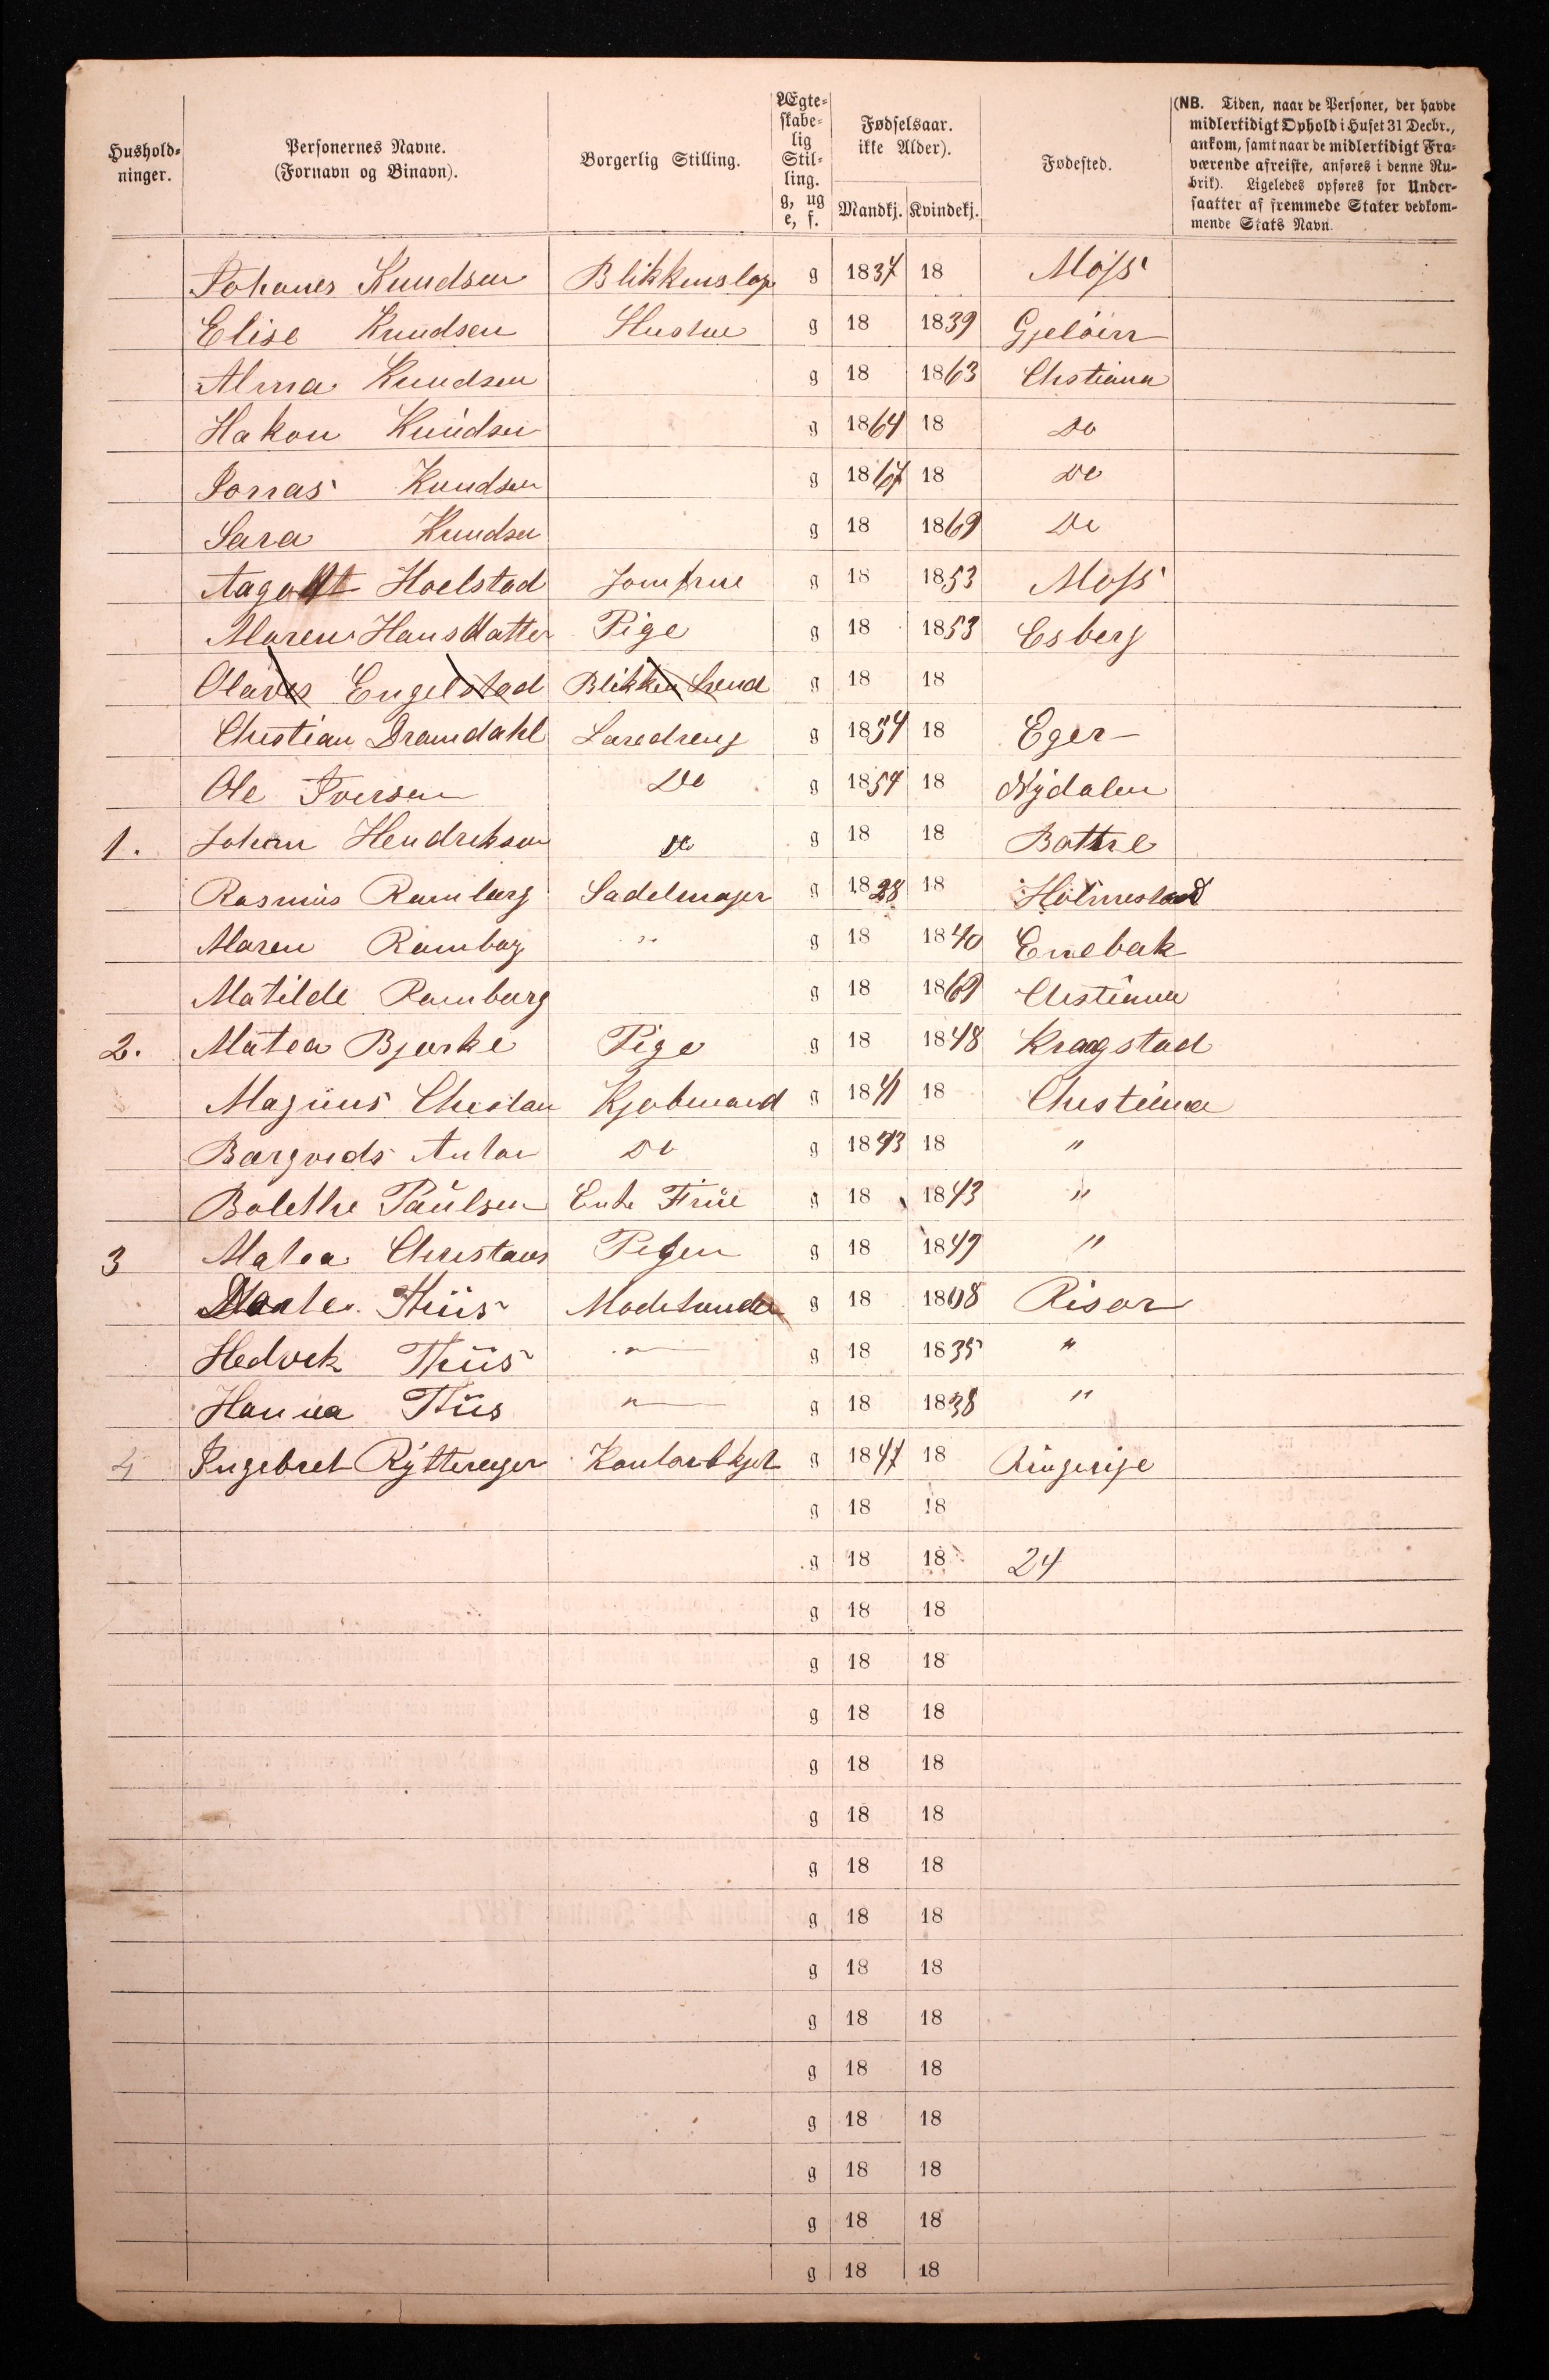 Hushold-
ninger.
Personernes Navne.
(Fornavn og Binavn).
Borgerlig Stilling.
Ægte-
skabe-
lig
Stil-
ling.
g, ug
e, f.
Fødselsaar.
ikke Alder).
Mandkj. Kvindekj.
Fødested.
(NB. Tiden, naar de Personer, der havde
midlertidigt Ophold i Huset 31 Decbr.,
ankom, samt naar de midlertidigt Fra-
værende afreiste, anføres i denne Ru-
brik). Ligeledes opføres for Under-
saatter af fremmede Stater vedkom-
mende Stats Navn.
Johanes Knudsen Blikkenslag g 1837 18 Moss
Elise Knudsen Hustue g 18 1839 Gjelöen
Alma Knudsen g 18 1863 Chstiana
Hakon Knudsen g 1864 18 Do
Jonas Knudsen g 1867 18 Do
Sara Knudsen g 18 1869 Do
Hoelstad Jomfrue g 18 1853 Moss
Maren Hansdatter Pige g 18 1853 Esberg
Olaves Engelstad Blikken Svend g 18 18
Chrstian Dramdahl Læredreng g 1854 18 Eger
Ole Iversen Do g 1854 18 Nydalen
1. Johan Hendriksen Do g 18 18
Rasmus Ramberg Sadelmager g 1828 18 Holmestad
Maren Ramberg " g 18 1840 Enebak
Matilde Ramberg g 18 1869 Chstiania
2. Matea Bjerke Pige g 18 1848 Kragstad
Magnus Kjøbmand g 1841 18 Chrstiania
Anton Do g 1843 18 "
Bolethe Paulsen Enke Frue g 18 1843 "
3 Matea Pigen g 18 1849 "
Thiis Modehandler g 18 18 Risør
Hedvek Thiis " g 18 1835 "
Hanna Thiis " g 18 1838 "
4 Ingebret g 1847 18 Ringerige
g 18 18
g 18 18 24
g 18 18
g 18 18
g 18 18
g 18 18
g 18 18
g 18 18
g 18 18
g 18 18
g 18 18
g 18 18
g 18 18
g 18 18
g 18 18
g 18 18